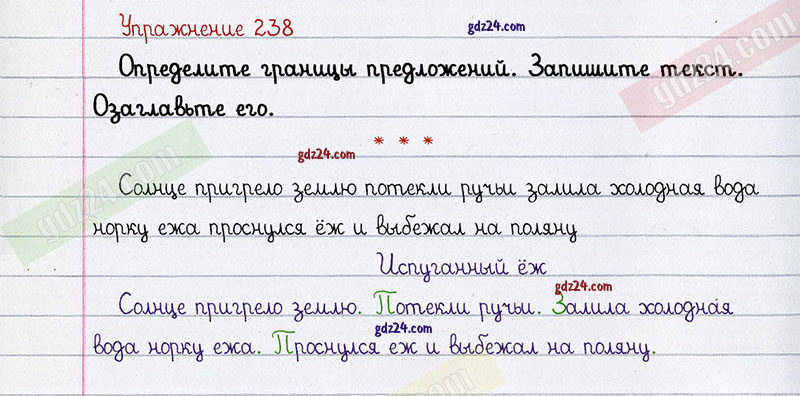 Упражнение 238 gdz24.com
Определите границы предложений. Запишите текст.
Озаглавьте его.
* * *
gdz24.com
Солнце пригрело землю потекли ручьи залила холодная вода
норку ежа проснулся ёж и выбежал на поляну
Испуганный ёж
gdz24.com
Солнце пригрело землю. Потекли ручьи. Залила холодная
gdz24.com
вода норку ежа. Проснулся еж и выбежал на поляну.
gdz24.com
gdz24.com
gdz24.com